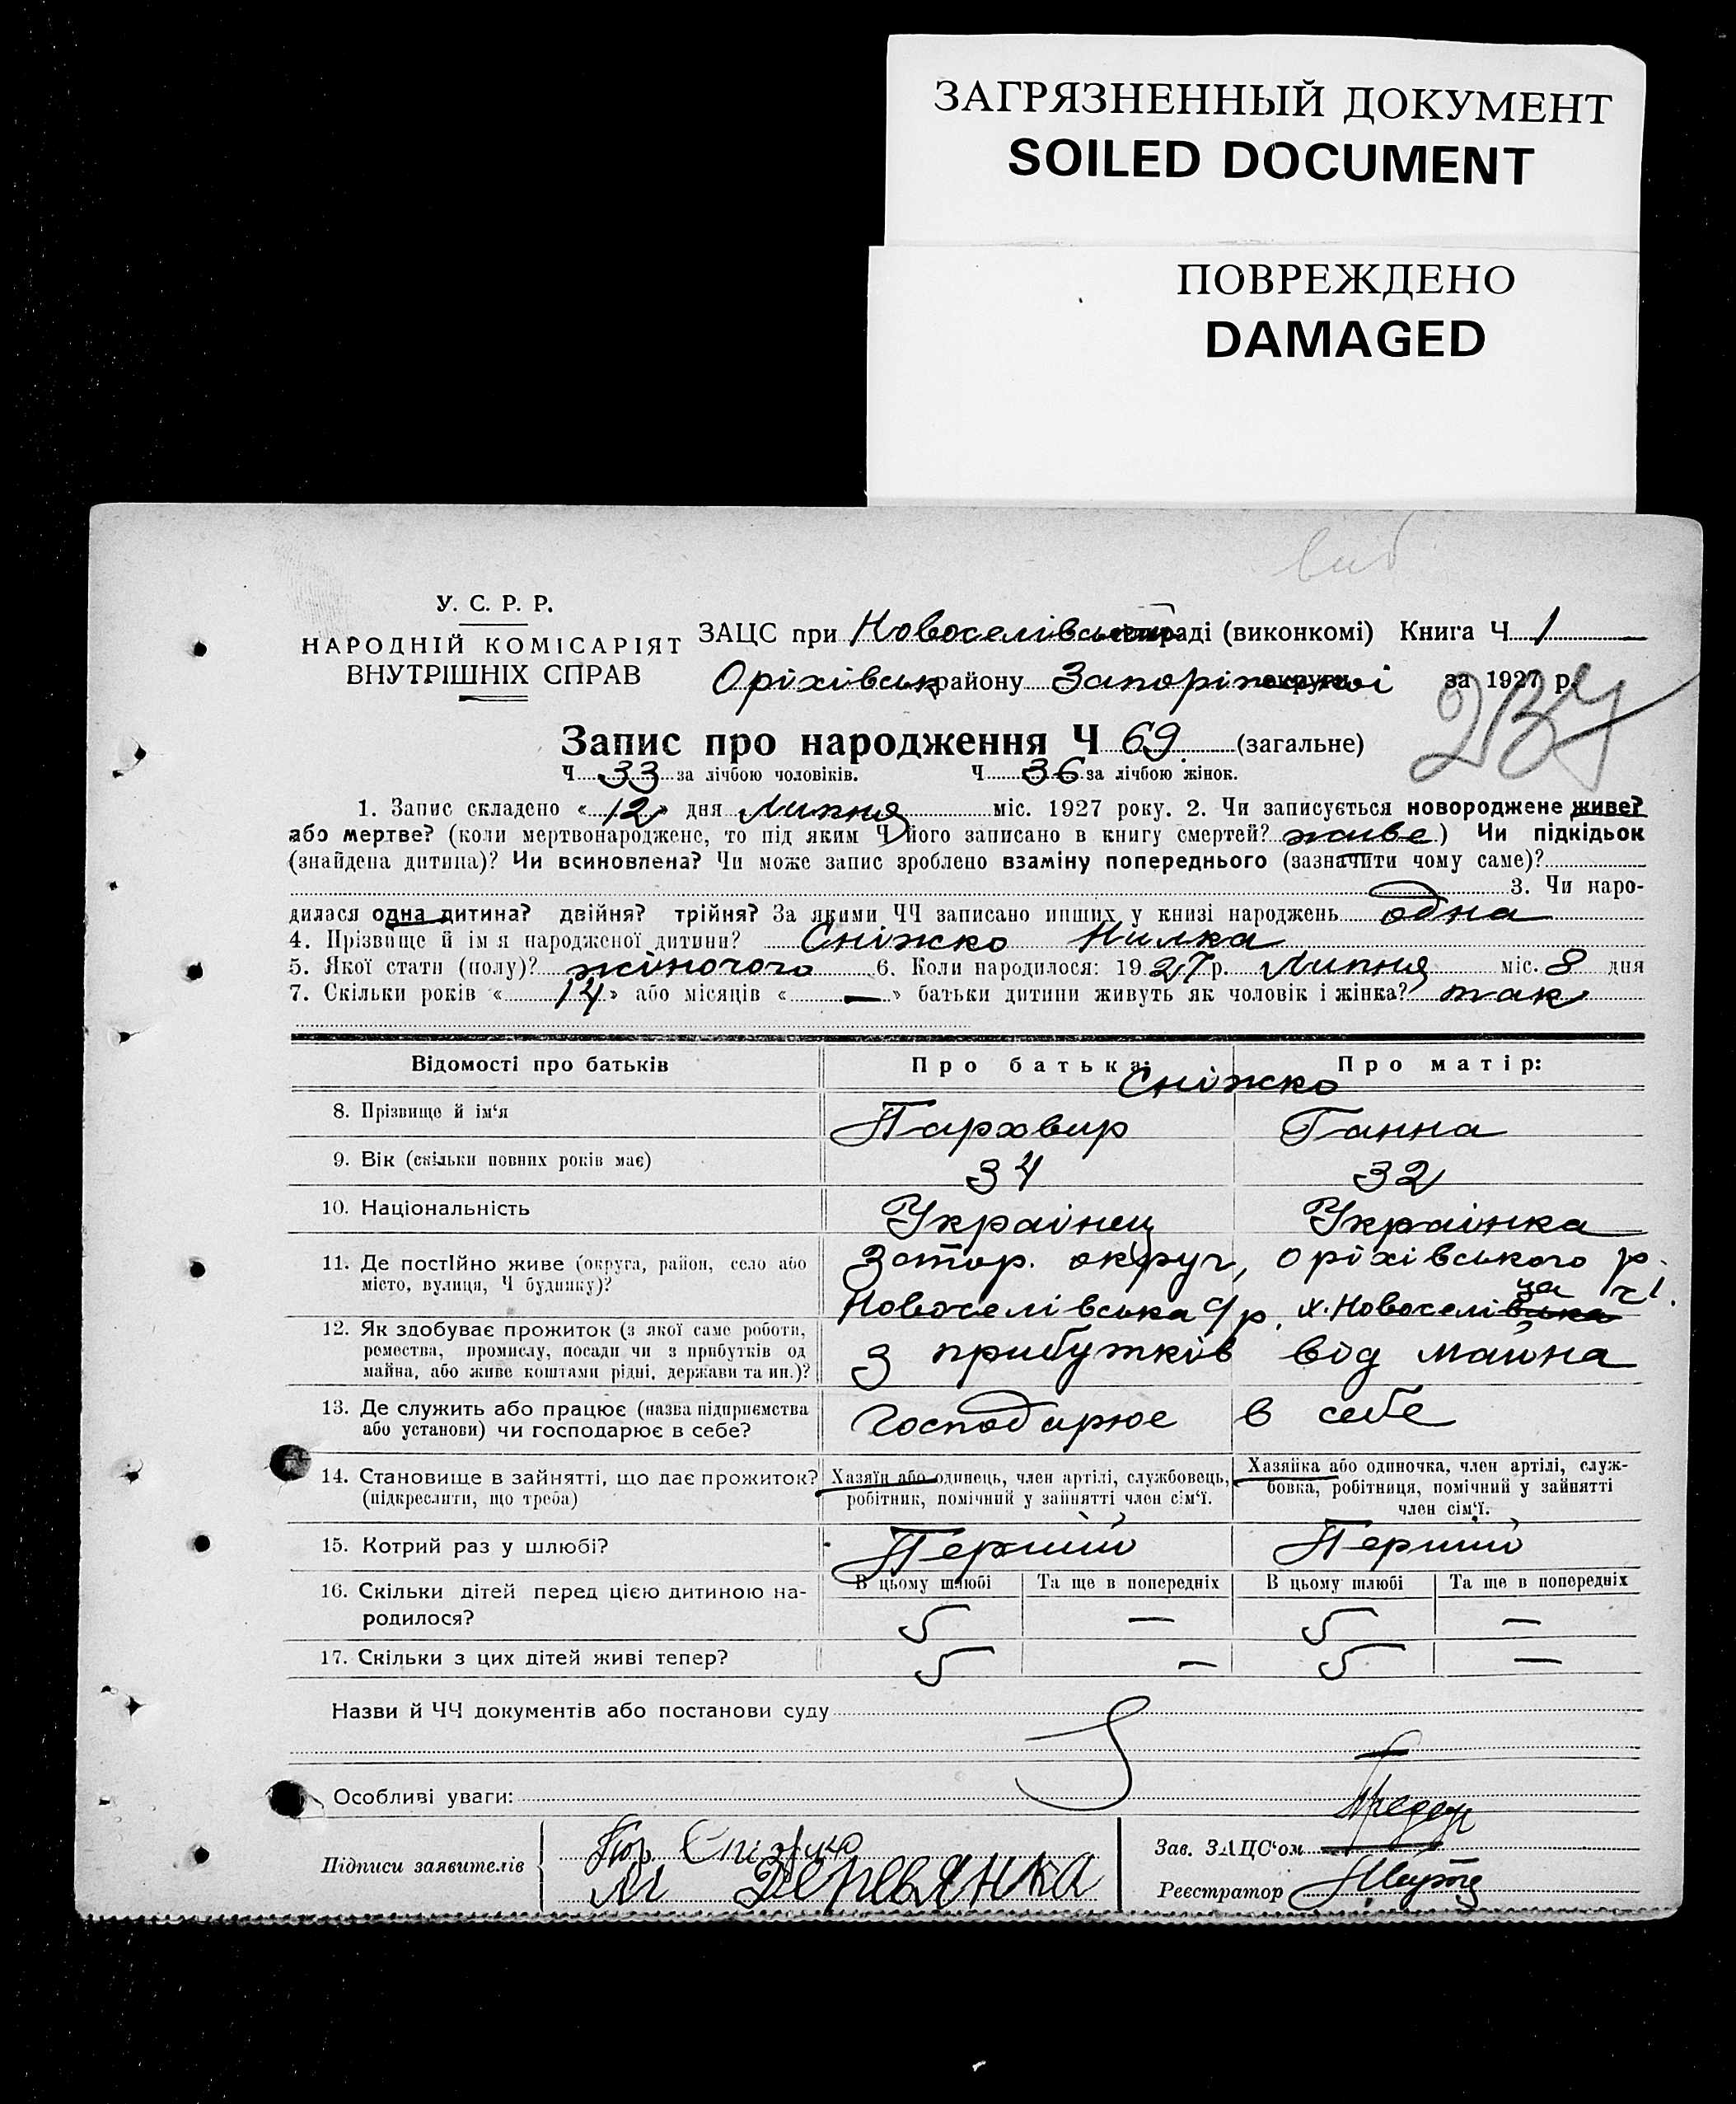 ЗАГРЯЗНЕННЫЙ ДОКУМЕНТ
SOILED DOCUMENT
ПОВРЕЖДЕНО
DAMAGED
У. С. Р. Р.
НАРОДНІЙ КОМІСАРІЯТ
ВНУТРІШНІХ СПРАВ
ЗАЦС при Новоселівській раді (виконкомі) Книга Ч 1
Оріхівськ району Запоріжської округи за 1927 р.
237
Запис про народження Ч 69 (загальне)
Ч 33 за лічбою чоловіків. Ч 36 за лічбою жінок.
1. Запис складено « 12 » дня Липня міс. 1927 року. 2. Чи записується новороджене живе?
або мертве? (коли мертвонароджене, то під яким Ч його записано в книгу смертей? живе ) Чи підкідьок
(знайдена дитина)? Чи всиновлена? Чи може запис зроблено взаміну попереднього (зазначити чому саме)?
3. Чи наро-
дилася одна дитина? двійня? трійня? За якими ЧЧ записано инших у книзі народжень одна
4. Прізвище й ім я народженої дитини? Сніжко Нилка
5. Якої стати (полу)? жіночого 6. Коли народилося: 19 27 р. Липня міс. 8 дня
7. Скільки років « 14 » або місяців « — » батьки дитини живуть як чоловік і жінка? так
Відомості про батьків Про батька: Про матір:
Сніжко
8. Прізвище й ім'я Пархвир Ганна
9. Вік (скільки повних років має) 34 32
10. Національність Украінец Украінка
11. Де постійно живе (округа, район, село або
місто, вулиця, Ч будинку)?
Запор. округ, оріхівського р.
Новоселівська с/р. х. Новоселівська ч 1.
12. Як здобуває прожиток (з якої саме роботи,
ремества, промислу, посади чи з прибутків од
майна, або живе коштами рідні, держави та ин.)?
з прибутків від майна
13. Де служить або працює (назва підприємства
або установи) чи господарює в себе?
Господарює в себе
14. Становище в зайнятті, що дає прожиток?
(підкреслити, що треба)
Хазяїн або одинець, член артілі, службовець,
робітник, помічний у зайнятті член сім'ї.
Хазяйка або одиночка, член артілі, служ-
бовка, робітниця, помічний у зайнятті
член сім'ї.
15. Котрий раз у шлюбі? Перший Перший
16. Скільки дітей перед цією дитиною на-
родилося?
В цьому шлюбі Та ще в попередніх В цьому шлюбі Та ще в попередніх
5 — 5 —
17. Скільки з цих дітей живі тепер? 5 — 5 —
Назви й ЧЧ документів або постанови суду
Особливі уваги:
Підписи заявителів
Сніжко
М Деревянка
Зав. ЗАЦС'ом
Реєстратор